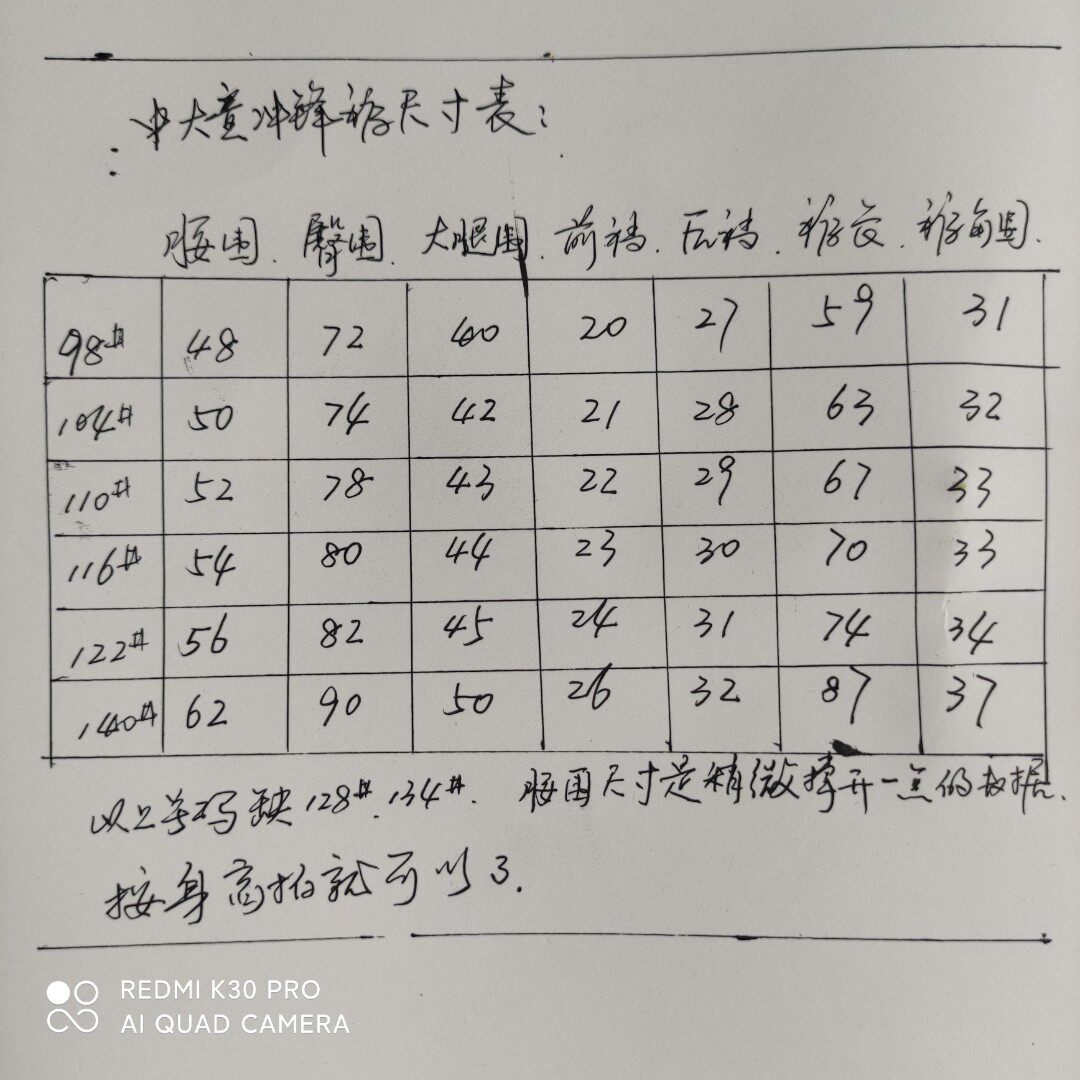 中大童冲锋裤尺寸表：
腰围. 臀围. 大腿围. 前裆. 后裆. 裤长. 裤角围.
98# 48 72 40 20 27 59 31
104# 50 74 42 21 28 63 32
110# 52 78 43 22 29 67 33
116# 54 80 44 23 30 70 33
122# 56 82 45 24 31 74 34
140# 62 90 50 26 32 87 37
以上号码缺128#.134#. 腰围尺寸是稍微撑开一点的数据.
按身高拍就可以了.
REDMI K30 PRO
AI QUAD CAMERA